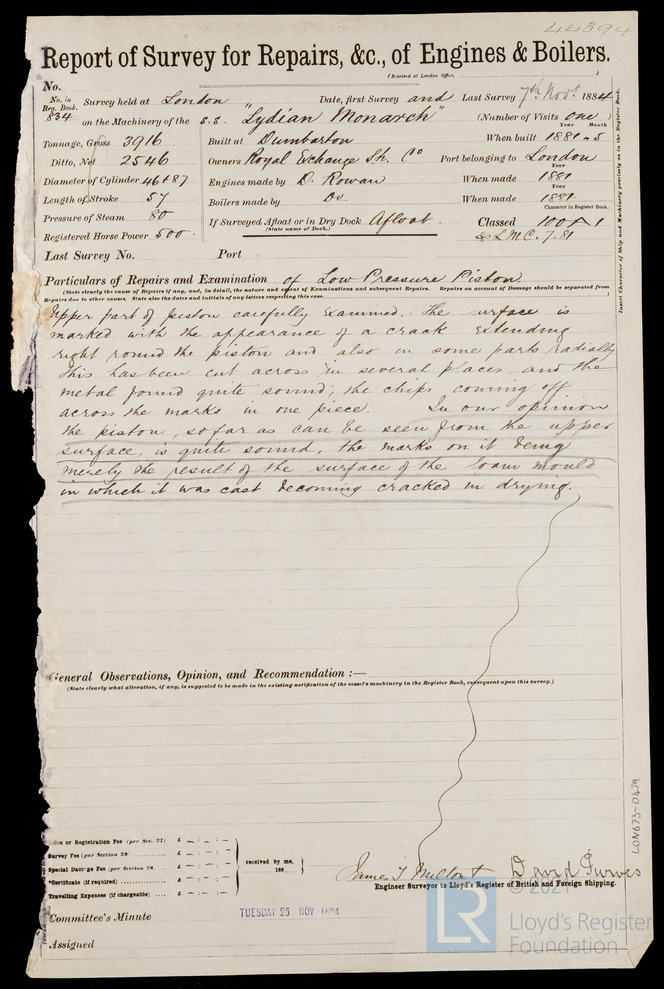 44394
Report of Survey for Repairs, &c., of Engines & Boilers.
(Received at London Office, )
No.
No. in Reg. Book. 834
Survey held at London Date, first Survey and Last Survey 7th Novr 1884
on the Machinery of the S.S. "Lydian Monarch" (Number of Visits one)
Tonnage, Gross 3916 Built at Dumbarton When built 1881 - 5 Year Month
Ditto, Net 2546 Owners Royal Exchange Sh. Co Port belonging to London
Diameter of Cylinder 46 + 87 Engines made by D. Rowan When made 1881 Year
Length of Stroke 57 Boilers made by Do When made 1881 Year
Pressure of Steam 80 If Surveyed Afloat or in Dry Dock Afloat Classed 100 A 1 Character in Register Book.
(State name of Dock.)
Registered Horse Power 500 & LMC. 7.81
Last Survey No. Port
Particulars of Repairs and Examination of Low Pressure Piston
(State clearly the cause of Repairs if any, and, in detail, the nature and extent of Examinations and subsequent Repairs. Repairs on account of Damage should be separated from
Repairs due to other causes. State also the dates and initials of any letters respecting this case.)
Upper part of piston carefully examined. The surface is
marked with the appearance of a crack extending
right round the piston and also in some parts radially
This has been cut across in several places and the
metal found quite sound; the chips coming off
across the marks in one piece. In our opinion
the piston, so far as can be seen from the upper
surface, is quite sound, the marks on it being
merely the result of the surface of the loam mould
in which it was cast becoming cracked in drying.
General Observations, Opinion, and Recommendation :—
(State clearly what alteration, if any, is suggested to be made in the existing notification of the vessel's machinery in the Register Book, consequent upon this survey.)
or Registration Fee (per Sec. 27) £ - : - : -
Survey Fee (per Section 28) £ - : - : -
Special Damage Fee (per Section 28) £ - : - : -
*Certificate (if required) £ - : - : -
Travelling Expenses (if chargeable) £ - : - : -
received by me,
188
James T Milton + David Purves
Engineer Surveyor to Lloyd's Register of British and Foreign Shipping.
Committee's Minute TUESDAY 25 NOV 1884
Assigned
Insert Character of Ship and Machinery precisely as in the Register Book.
LON673-0479
© 2021
LR
Lloyd's Register
Foundation